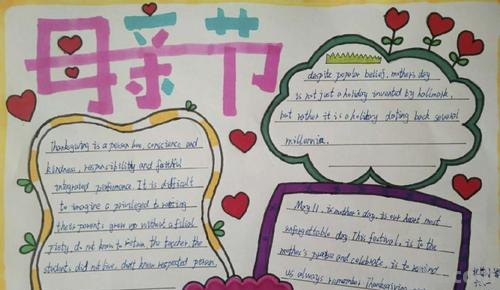 母亲节
despite popular belief, mother's day
is not just a holiday invented by hallmark,
but rather it is a holiday dating back several
millennia.
Thanksgiving is a person has, conscience and
kindness, responsibility and faithful
integrated performance. It is difficult
to imagine a privileged to
their parents, grew up without a filial
piety, do not know to return the teacher, the
students did not love, don't know respected person.
May 11, is mother's day, is our heart most
unforgettable day. This festival, is to the
mother's praise and celebrate, is to
us always remember Thanksgiving